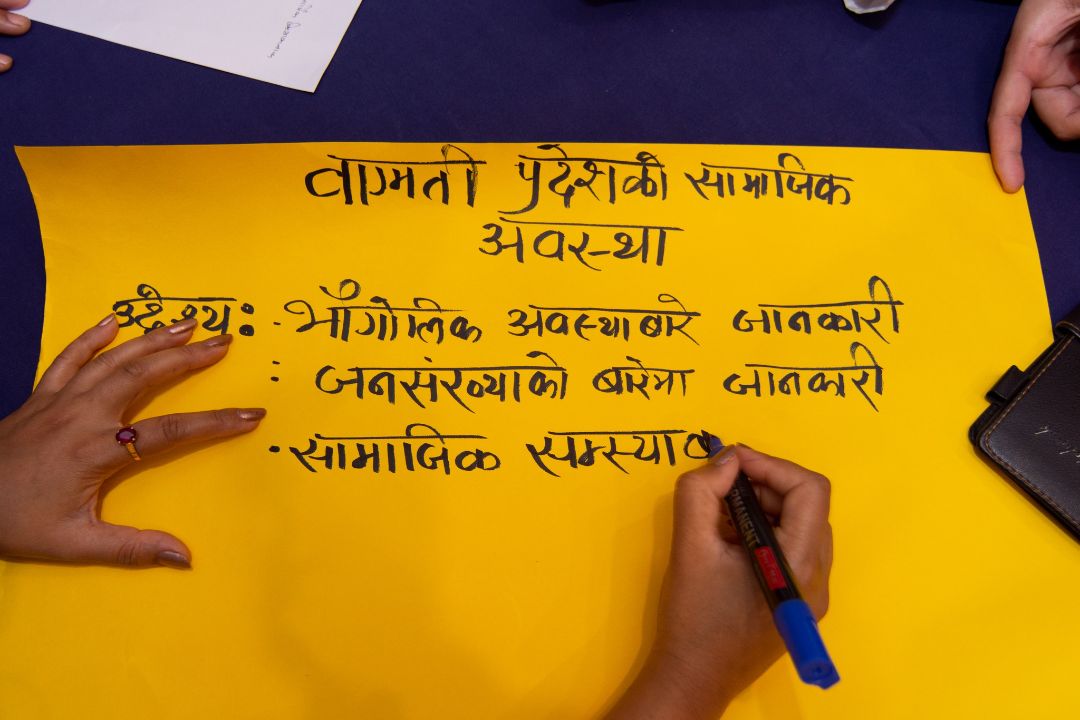 वाग्मती प्रदेशको सामाजिक
अवस्था
उद्देश्य: · भौँगोलिक अवस्थाबारे जानकारी
: जनसंख्याको बारेमा जानकारी
· सामाजिक समस्याब
PERMANENT